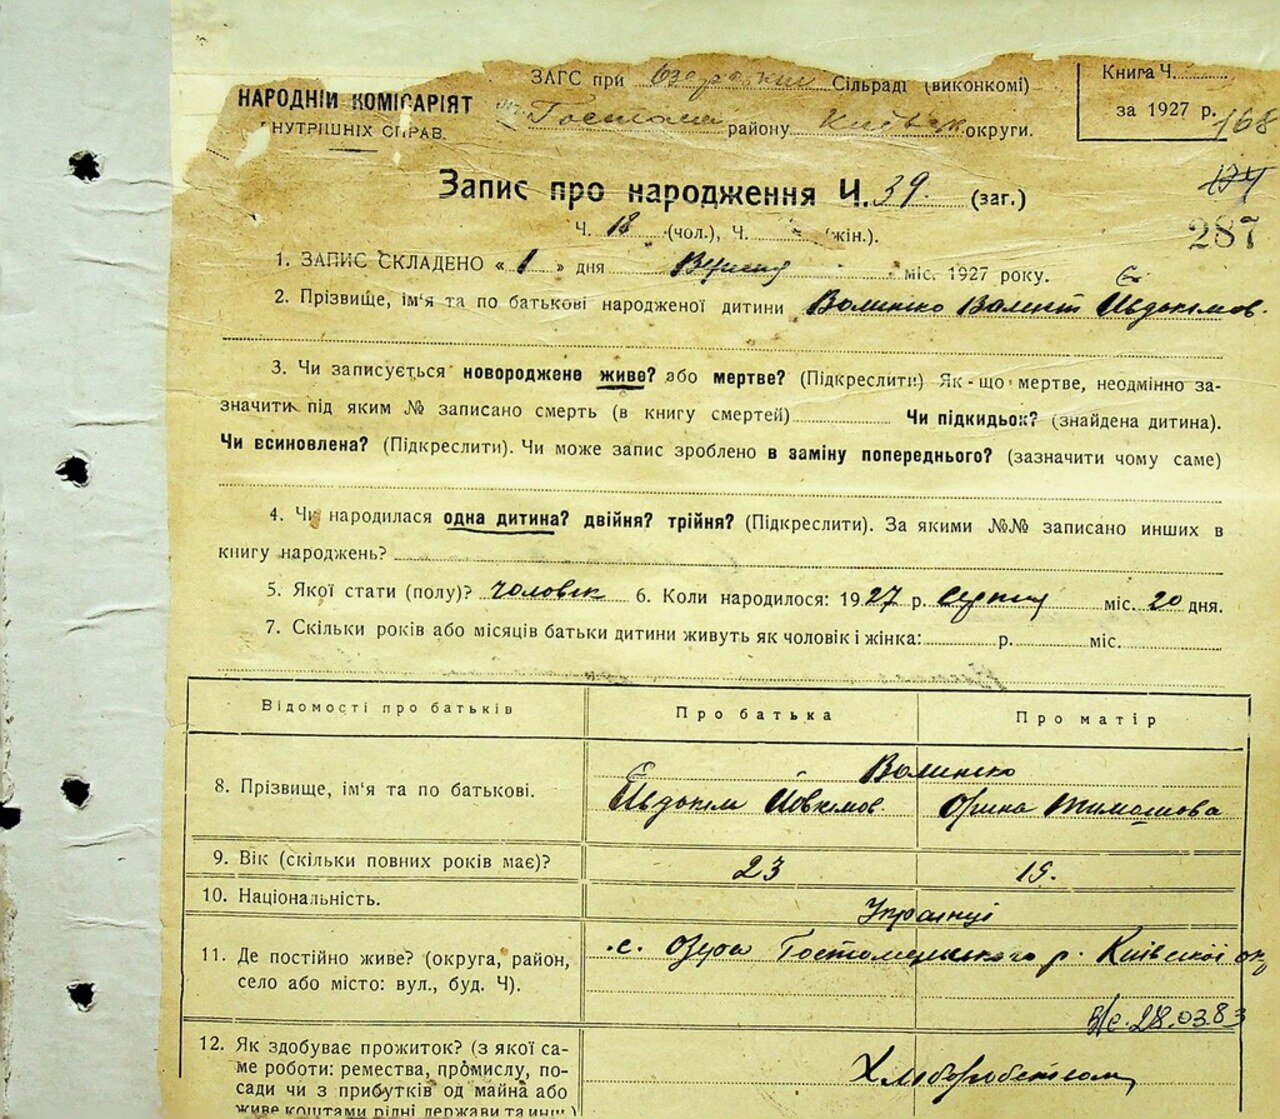 ЗАГС при Озерській Сільраді (виконкомі)
Книга Ч.
НАРОДНІЙ КОМІСАРІЯТ
Гостом району Київськ округи.
за 1927 р. 168
ВНУТРІШНІХ СПРАВ.
Запис про народження Ч. 39. (заг.)
287
Ч. 18 (чол.), Ч. (жін.).
1. ЗАПИС СКЛАДЕНО « 1 » дня Вересня міс. 1927 року.
Є
2. Прізвище, ім'я та по батькові народженої дитини Волинко Валент Євдокімов.
3. Чи записується новороджене живе? або мертве? (Підкреслити) Як-що мертве, неодмінно за-
значити під яким № записано смерть (в книгу смертей) Чи підкидьок? (знайдена дитина).
Чи всиновлена? (Підкреслити). Чи може запис зроблено в заміну попереднього? (зазначити чому саме)
4. Чи народилася одна дитина? двійня? трійня? (Підкреслити). За якими №№ записано инших в
книгу народжень?
5. Якої стати (полу)? чоловік 6. Коли народилося: 1927 р. серпня міс. 20 дня.
7. Скільки років або місяців батьки дитини живуть як чоловік і жінка: р. міс.
Відомості про батьків Про батька Про матір
Є Волинко
8. Прізвище, ім'я та по батькові. Євдокім Йовхімов. Орина Тимошова
9. Вік (скільки повних років має)? 23 19.
10. Національність. Українці
11. Де постійно живе? (округа, район, с. Озера Гостомельського р. Київської ок
село або місто: вул., буд. Ч).
28.03.83
12. Як здобуває прожиток? (з якої са- Хлеборобством
ме роботи: ремества, промислу, по-
сади чи з прибутків од майна або
живе коштами рідні держави та инш.)